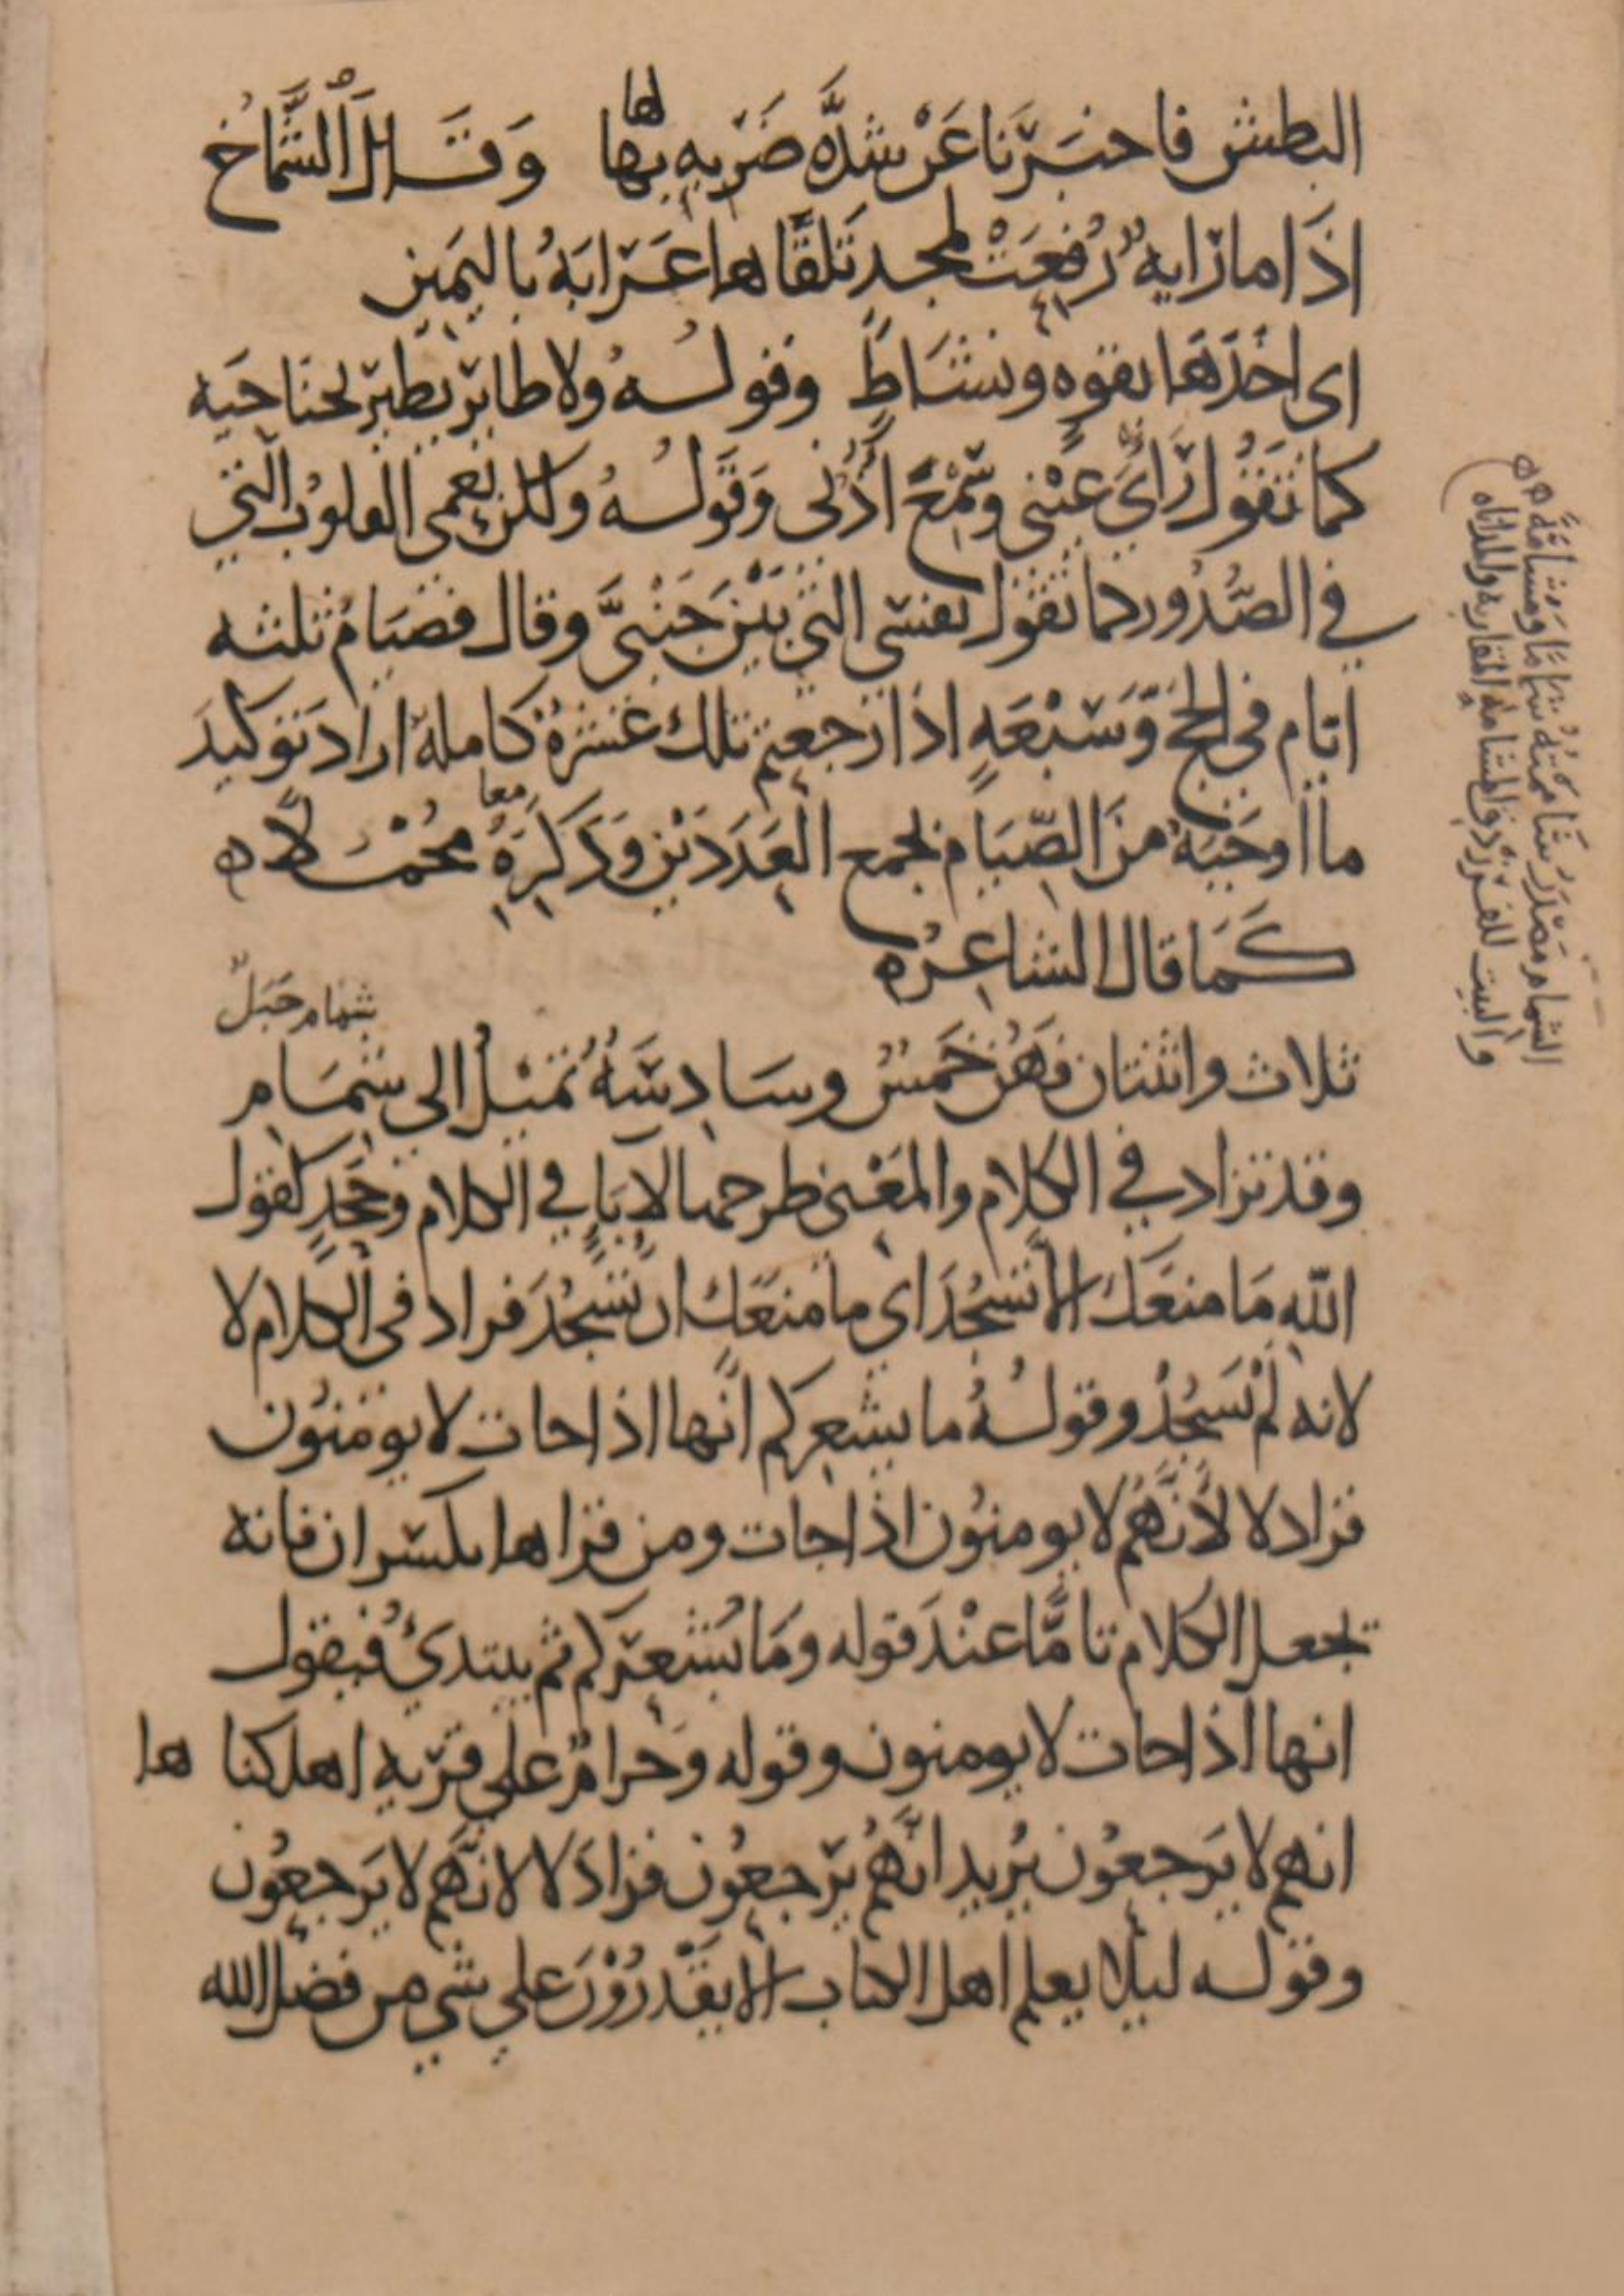 البطش فاخبَرَنا عَنْ شدَّه ضَرْبِهِ بها لها وَقَال الشَّمَّاخُ
اذَا ما رَايهٌ رُفِعَتْ لمجدٍ تَلقَّاها عَرَابَهُ باليَمِين
اى اخَذَهَا بقوه ونشَاطٍ وقولُهُ ولا طايرٍ يطير بجنَاحَيه
كما تَقُول رَأيُ عَيْنى وسَمْعُ اذُنى وَقَولُهُ ولكن تعمى القلوبُ التي
في الصُّدُور كما تقول نفسى التي بَيْنَ جَنْبىَّ وقال فصيَامُ ثلثه
ايّام فى الحَج وَسَبْعَهٍ اذا رجعتم تلك عَشَرَهٌ كاملهٌ ارَادَ توكيدَ
ما اوجَبَهُ منَ الصِّيَام بجمع العَدَدَيْنِ وَذَكَرَهُ مُجْمَلًا ه
معا
كَمَا قال الشاعِرُ ه
شمام جَبَلٌ
ثلاث واثنتان فَهُنَّ خَمسٌ وسَادِسَهٌ تَمِيْلُ الى شِمَامِ
وقد تزاد في الكلام والمَعْنى طرحها لاِبَاءٍ في الكلام وجَحْدٍ كقول
اللهِ مَا منعَكَ الاَّ تَسْجُدَ اى ما منعَكَ ان تَسْجُدَ فزاد فى الكلام لا
لانه لمْ يَسْجُدْ وقولُهُ ما يشعِركم انَّها اذا جات لا يومنُون
فزاد لا لأَنَّهُم لا يومنُون اذا جات ومن قراها بكسر ان فانه
يجعل الكلام تامًّا عنْدَ قوله ومَا يُشعِركم ثم يبتدئُ فيقول
انها اذا جات لا يومنون وقوله وَحرامٌ على قريه اهلكنا ها
انهم لا يَرجعُون يُريد انَّهُم يَرجعُون فزادَ لا لانَّهم لا يَرجعُون
وقوله ليلا يعلم اهل الكتاب الا يقْدرُوْنَ على شي من فضل الله
الشِمام مَصْدَرُ شَامَمْتُهُ شِمَامًا ومُشَامَّهً ه
والبيت للفرزدق والمشامه المقاربه والمداناه